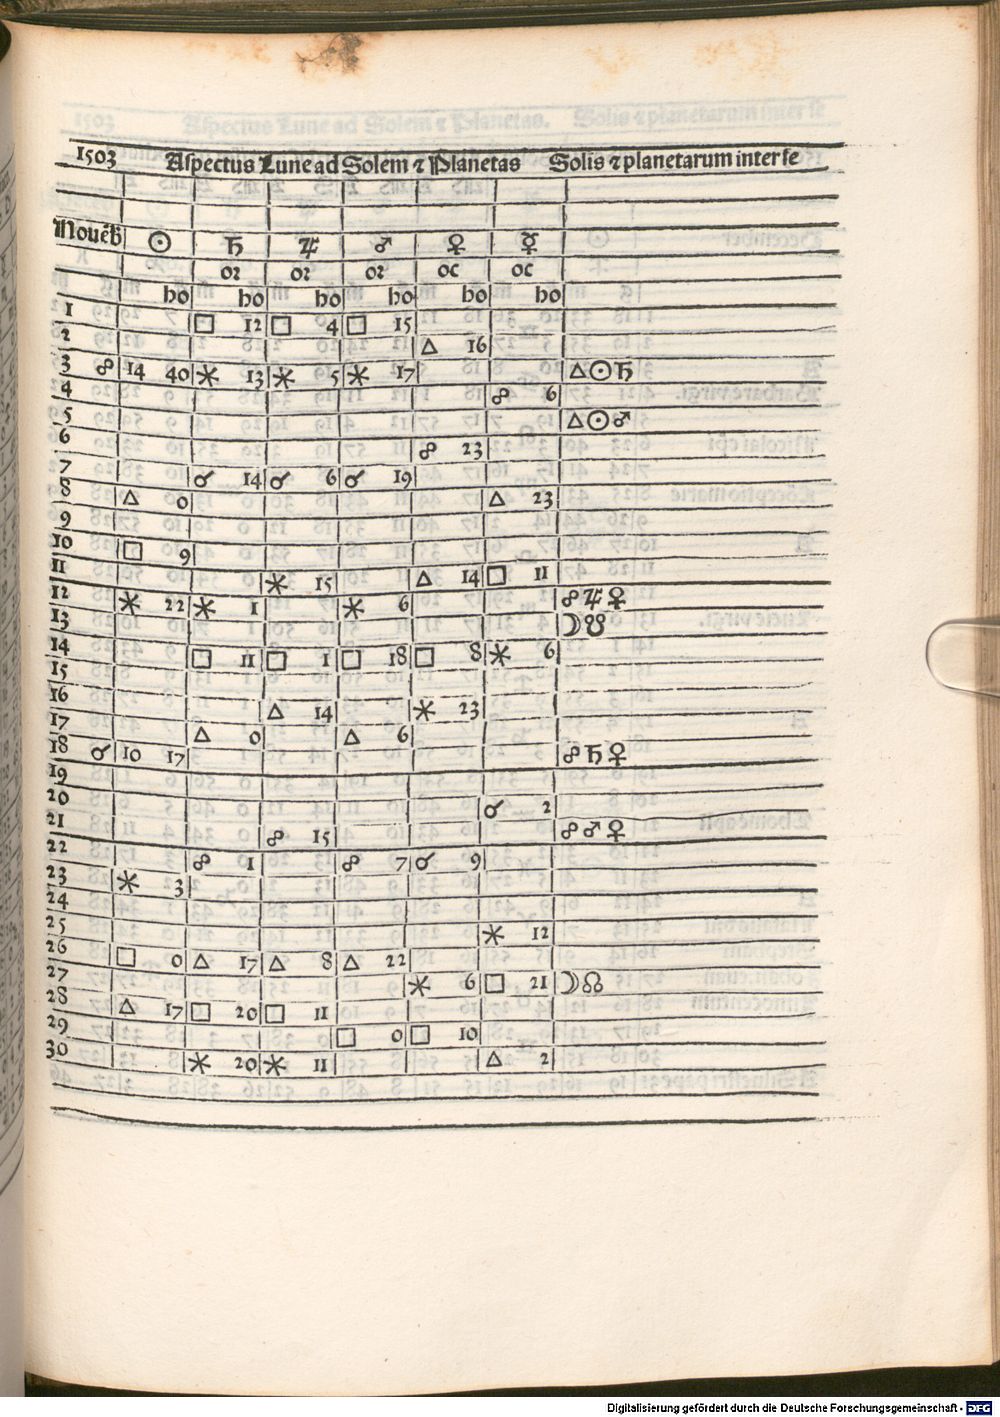 1503 Aspectus Lune ad Solem ⁊ Planetas Solis ⁊ planetarum inter se
Nouēb ☉ ♄ ♃ ♂ ♀ ☿
oꝛ oꝛ oꝛ oc oc
ho ho ho ho ho ho
1 □ 12 □ 4 □ 15
2 △ 16
3 ☍ 14 40 ⚹ 13 ⚹ 5 ⚹ 17 △ ☉ ♄
4 ☍ 6
5 △ ☉ ♂
6 ☍ 23
7 ☌ 14 ☌ 6 ☌ 19
8 △ 0 △ 23
9
10 □ 9
11 ⚹ 15 △ 14 □ 11
12 ⚹ 22 ⚹ 1 ⚹ 6 ☍ ♃ ♀
13 ☽ ☋
14 □ 11 □ 1 □ 18 □ 8 ⚹ 6
15
16 △ 14 ⚹ 23
17 △ 0 △ 6
18 ☌ 10 17 ☍ ♄ ♀
19
20 ☌ 2
21 ☍ 15 ☍ ♂ ♀
22 ☍ 1 ☍ 7 ☌ 9
23 ⚹ 3
24
25 ⚹ 12
26 □ 0 △ 17 △ 8 △ 22
27 ⚹ 6 □ 21 ☽ ☊
28 △ 17 □ 20 □ 11
29 □ 0 □ 10
30 ⚹ 20 ⚹ 11 △ 2
Digitalisierung gefördert durch die Deutsche Forschungsgemeinschaft - DFG